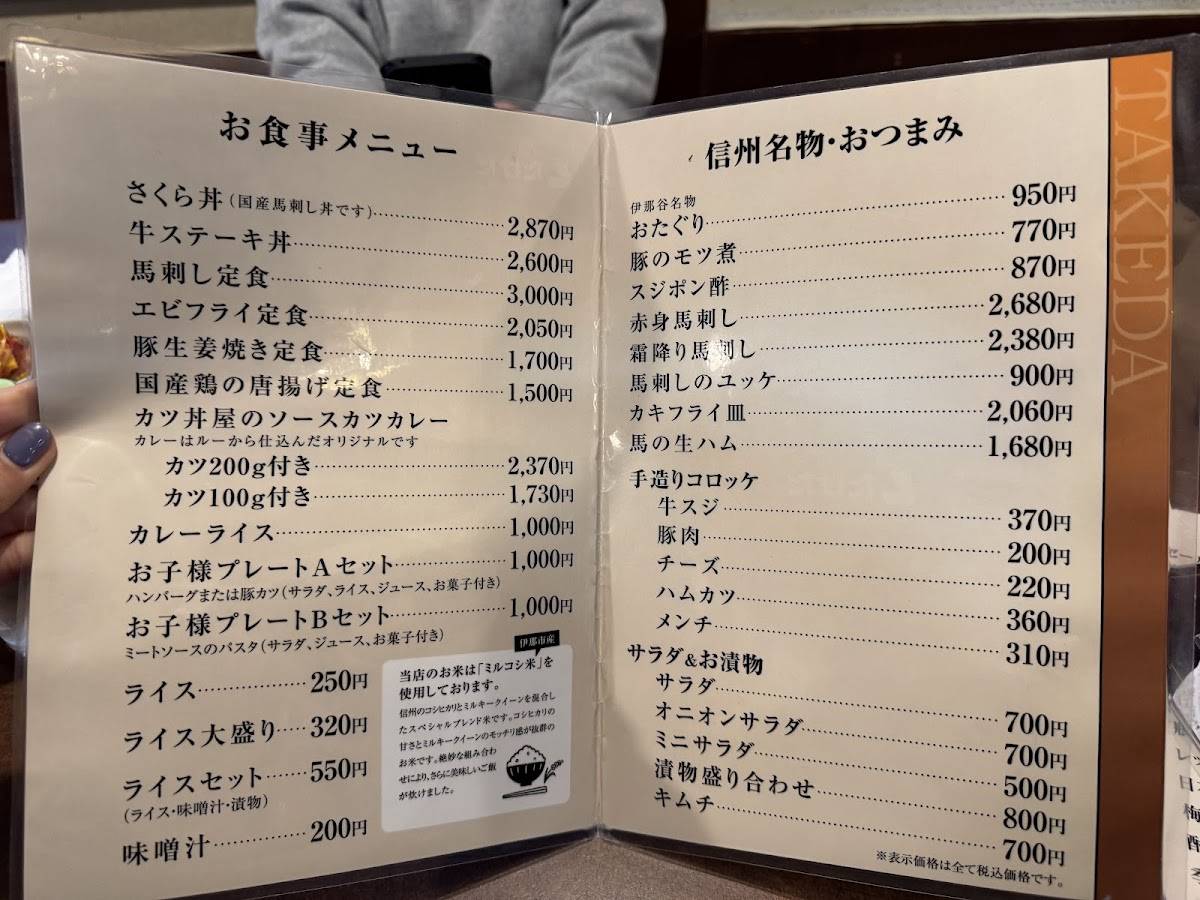 お食事メニュー
さくら丼(国産馬刺し丼です) 2,870円
牛ステーキ丼 2,600円
馬刺し定食 3,000円
エビフライ定食 2,050円
豚生姜焼き定食 1,700円
国産鶏の唐揚げ定食 1,500円
カツ丼屋のソースカツカレー
カレーはルーから仕込んだオリジナルです
カツ200g付き 2,370円
カツ100g付き 1,730円
カレーライス 1,000円
お子様プレートAセット 1,000円
ハンバーグまたは豚カツ(サラダ、ライス、ジュース、お菓子付き)
お子様プレートBセット 1,000円
ミートソースのパスタ(サラダ、ジュース、お菓子付き)
ライス 250円
ライス大盛り 320円
ライスセット 550円
(ライス・味噌汁・漬物)
味噌汁 200円
伊那市産
当店のお米は「ミルコシ米」を
使用しております。
信州のコシヒカリとミルキークイーンを混合し
たスペシャルブレンド米です。コシヒカリの
甘さとミルキークイーンのモッチリ感が抜群の
お米です。絶妙な組み合わ
せにより、さらに美味しいご飯
が炊けました。
信州名物・おつまみ
伊那谷名物
おたぐり 950円
豚のモツ煮 770円
スジポン酢 870円
赤身馬刺し 2,680円
霜降り馬刺し 2,380円
馬刺しのユッケ 900円
カキフライ皿 2,060円
馬の生ハム 1,680円
手造りコロッケ
牛スジ 370円
豚肉 200円
チーズ 220円
ハムカツ 360円
メンチ 310円
サラダ&お漬物
サラダ 700円
オニオンサラダ 700円
ミニサラダ 500円
漬物盛り合わせ 800円
キムチ 700円
※表示価格は全て税込価格です。
TAKEDA